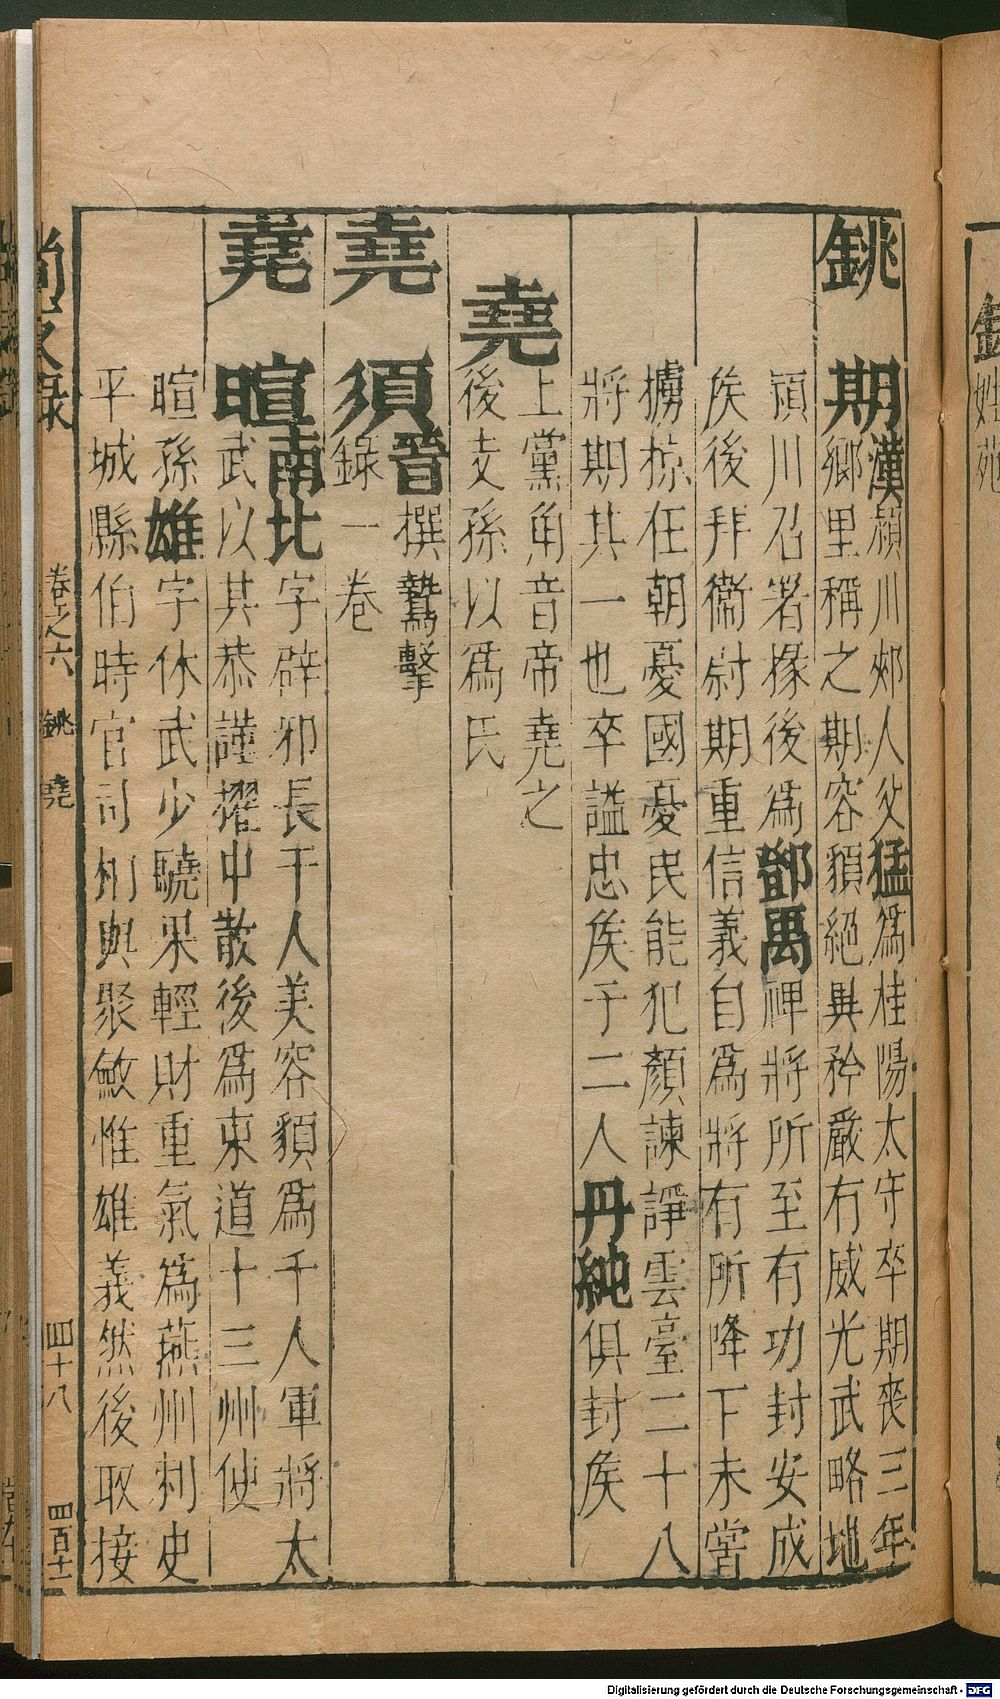 銚
期漢潁川郟人父猛爲桂陽太守卒期喪三年
鄉里稱之期容貌絕異矜嚴有威光武略地
潁川召署掾後爲鄧禹裨將所至有功封安成
侯後拜衞尉期重信義自爲將有所降下未嘗
擄掠在朝憂國憂民能犯顏諫諍雲臺二十八
將期其一也卒謚忠侯子二人丹純俱封侯
堯
上黨角音帝堯之
後支孫以爲氏
堯
須晉撰鷙擊
錄一卷
堯
暄南北字辟邪長千人美容貌爲千人軍將太
武以其恭謹擢中散後爲東道十三州使
暄孫雄字休武少驍果輕財重氣爲燕州刺史
平城縣伯時官司相與聚斂惟雄義然後取接
尚友錄
卷之六
銚
堯
四十八
四百十二
姓苑
Digitalisierung gefördert durch die Deutsche Forschungsgemeinschaft - DFG